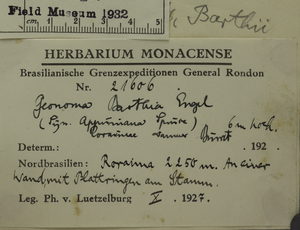 Field Museum 1932
cm 1 2 3 4 5
Barthii
HERBARIUM MONACENSE
Brasilianische Grenzexpeditionen General Rondon
Nr. 21606.
Geonoma Barthia Engl
(Syn. Appuniana Spruce) 6 m hoch.
Burret
Determ.: 192 .
Nordbrasilien: Roraima 2250 m. An einer
Wand, mit Blattringen am Stamm.
Leg. Ph. v. Luetzelburg X. 1927.